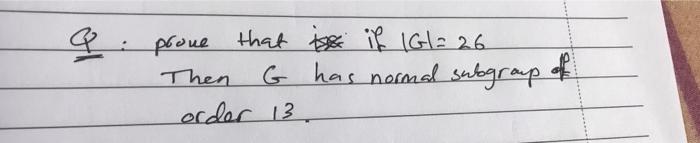 Q : prove that if |G| = 26
Then G has normal subgroup of
order 13.